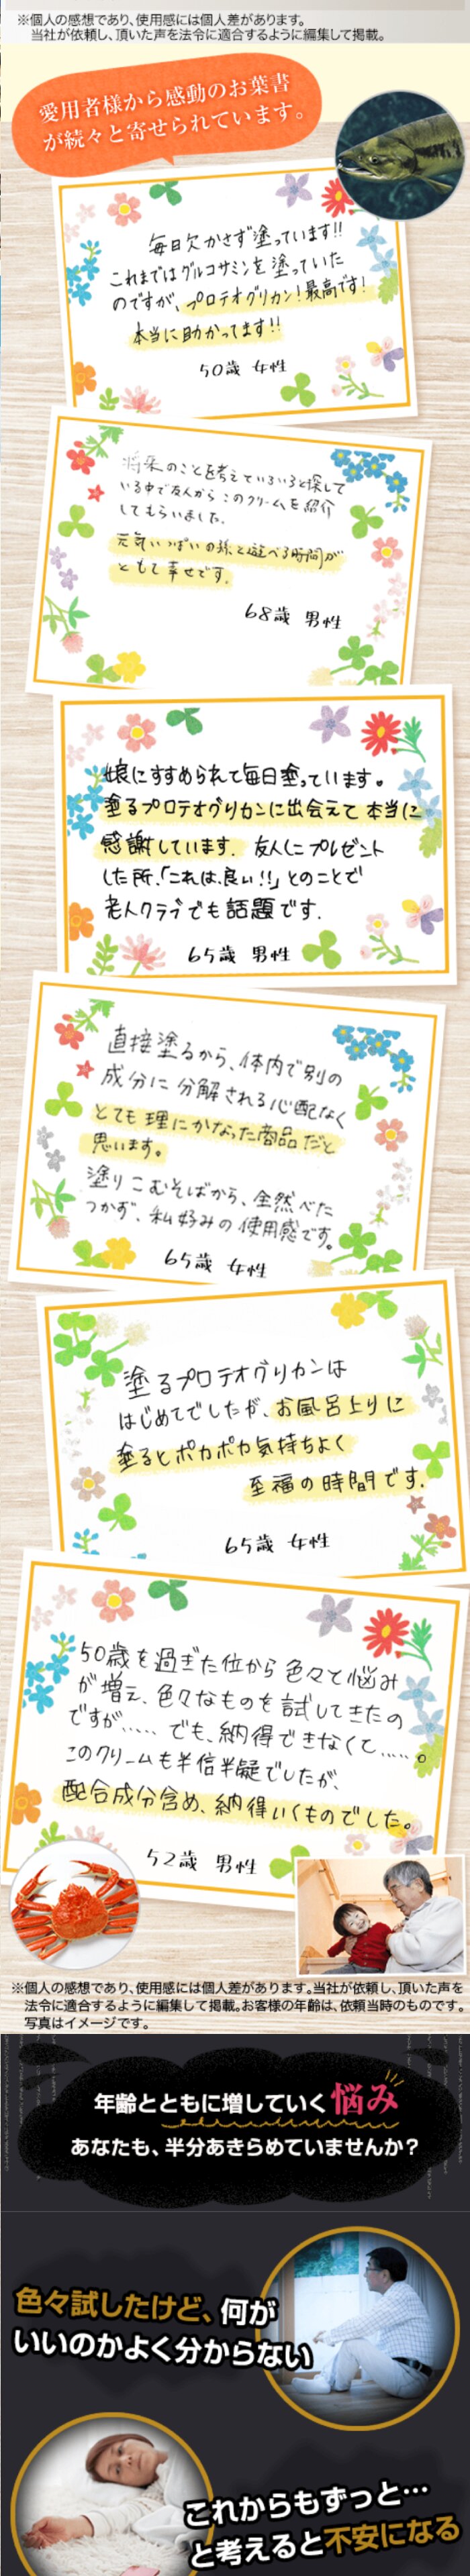 ※個人の感想であり、使用感には個人差があります。
当社が依頼し、頂いた声を法令に適合するように編集して掲載。
愛用者様から感動のお葉書
が続々と寄せられています。
毎日欠かさず塗っています!!
これまではグルコサミンを塗っていた
のですが、プロテオグリカン!最高です!
本当に助かってます!!
50歳 女性
将来のことを考えていろいろと探して
いる中で友人からこのクリームを紹介
してもらいました。
元気いっぱいの孫と遊べる時間が
とても幸せです。
68歳 男性
娘にすすめられて毎日塗っています。
塗るプロテオグリカンに出会えて本当に
感謝しています。友人にプレゼント
した所、「これは、良い!!」とのことで
老人クラブでも話題です。
65歳 男性
直接塗るから、体内で別の
成分に分解される心配なく
とても理にかなった商品だと
思います。
塗りこむそばから、全然べた
つかず、私好みの使用感です。
65歳 女性
塗るプロテオグリカンは
はじめてでしたが、お風呂上りに
塗るとポカポカ気持ちよく
至福の時間です。
65歳 女性
50歳を過ぎた位から色々と悩み
が増え、色々なものを試してきたの
ですが..... でも、納得できなくて.....。
このクリームも半信半疑でしたが、
配合成分含め、納得いくものでした。
52歳 男性
※個人の感想であり、使用感には個人差があります。当社が依頼し、頂いた声を
法令に適合するように編集して掲載。お客様の年齢は、依頼当時のものです。
写真はイメージです。
年齢とともに増していく悩み
あなたも、半分あきらめていませんか?
色々試したけど、何が
いいのかよく分からない
これからもずっと…
と考えると不安になる